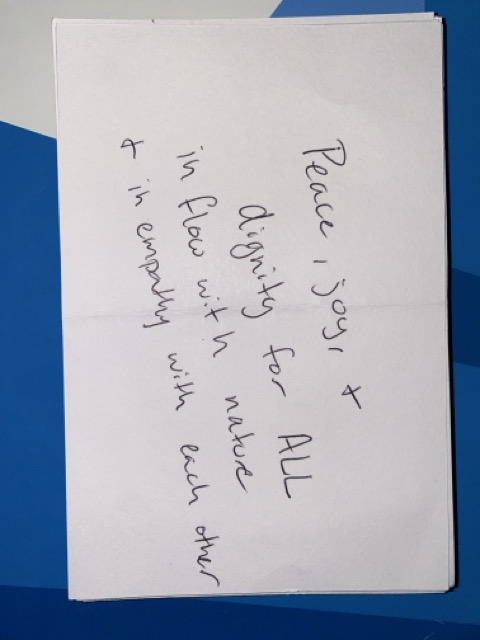 Peace, joy, +
dignity for ALL
in flow with nature
+ in empathy with each other